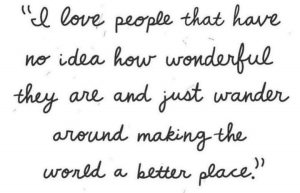 "I love people that have
no idea how wonderful
they are and just wander
around making the
world a better place."